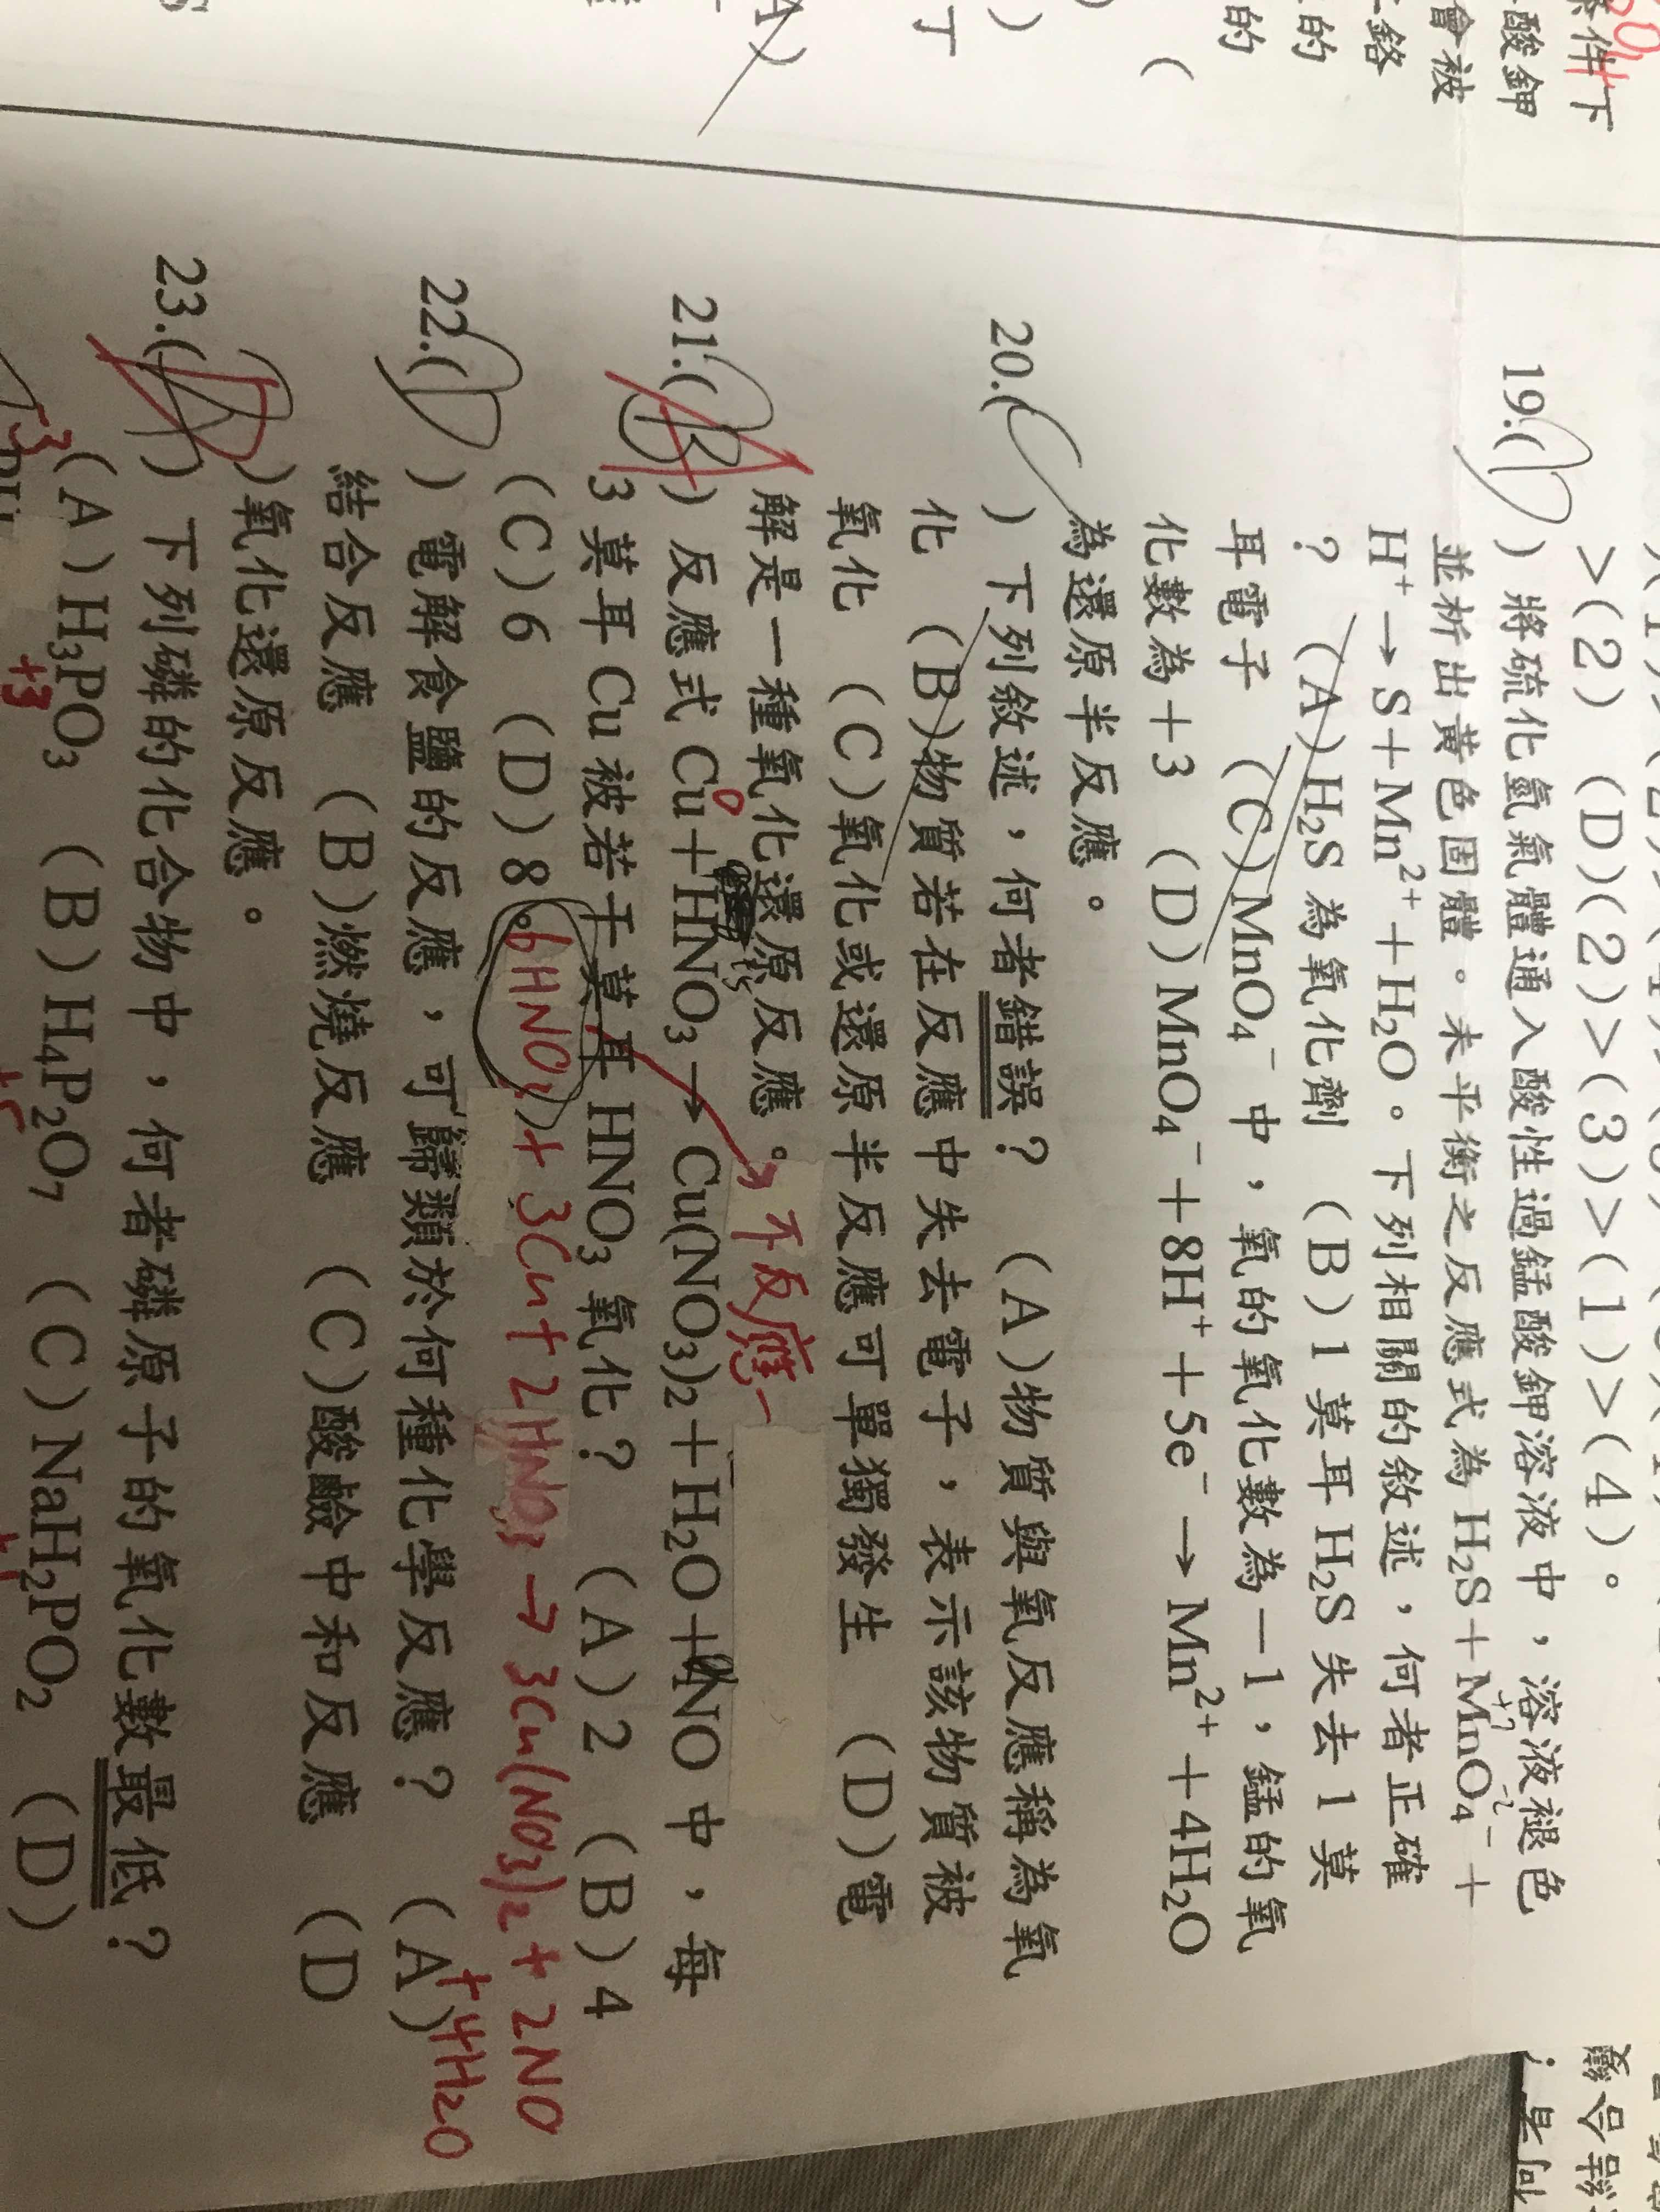 條件下
酸鉀
會被
鉻
的
的
>(2) (D)(2)>(3)>(1)>(4)。
19.(D)將硫化氫氣體通入酸性過錳酸鉀溶液中,溶液褪色
並析出黃色固體。未平衡之反應式為 H₂S+MnO₄⁻+
+7 -2
H⁺→S+Mn²⁺+H₂O。下列相關的敘述,何者正確
? (A)H₂S 為氧化劑 (B)1 莫耳 H₂S 失去 1 莫
耳電子 (C)MnO₄⁻ 中,氧的氧化數為-1,錳的氧
化數為+3 (D)MnO₄⁻+8H⁺+5e⁻→Mn²⁺+4H₂O
為還原半反應。
20.(C)下列敘述,何者錯誤? (A)物質與氧反應稱為氧
化 (B)物質若在反應中失去電子,表示該物質被
氧化 (C)氧化或還原半反應可單獨發生 (D)電
解是一種氧化還原反應。
不反應
21.(B)反應式 Cu+HNO₃→Cu(NO₃)₂+H₂O+NO 中,每
0
3 莫耳 Cu 被若干莫耳 HNO₃ 氧化? (A)2 (B)4
(C)6 (D)8。
6HNO₃+3Cu+2HNO₃→3Cu(NO₃)₂+2NO
+4H₂O
22.(D)電解食鹽的反應,可歸類於何種化學反應? (A)
結合反應 (B)燃燒反應 (C)酸鹼中和反應 (D
)氧化還原反應。
23.( )下列磷的化合物中,何者磷原子的氧化數最低?
(A)H₃PO₃ (B)H₄P₂O₇ (C)NaH₂PO₂ (D)
+3
-3